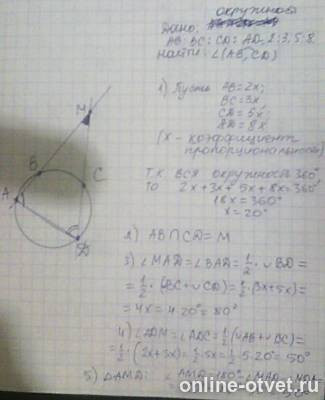 окружность
Дано:
AB:BC:CD:AD, 2:3:5:8
Найти: ∠(AB, CD)
1) Пусть AB=2x;
BC=3x
CD=5x
AD=8x
(x - коэффициент
пропорциональности)
Т.К. ВСЯ окружность 360°,
то 2x+3x+5x+8x=360°
18x=360°
x=20°
2) AB∩CD=M
3) ∠MAD=∠BAD=1/2·∪BD=
=1/2·(BC+∪CD)=1/2·(3x+5x)=
=4x=4·20°=80°
4) ∠ADM=∠ADC=1/2(∪AB+∪BC)=
=1/2·(2x+3x)=1/2·5x=1/2·5·20°=50°
5) △AMD: ∠AMD=180°-∠MAD-
M
B
C
A
D
online-otvet.ru